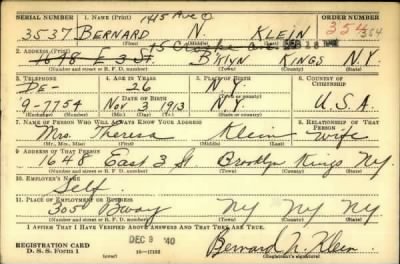 SERIAL NUMBER 1. NAME (Print) 1415 Ave O ORDER NUMBER
3537 BERNARD N. KLEIN 354
(First) (Middle) (Last)
2. ADDRESS (Print)
1648 E 3 St. B'KLYN KINGS N.Y.
(Number and street or R. F. D. number) (Town) (County) (State)
3. TELEPHONE 4. AGE IN YEARS 5. PLACE OF BIRTH 6. COUNTRY OF CITIZENSHIP
DE- 26 N.Y.
DATE OF BIRTH
9-7754 Nov 3, 1913 N.Y. U.S.A.
(Exchange) (Number) (Mo.) (Day) (Yr.) (State or country)
7. NAME OF PERSON WHO WILL ALWAYS KNOW YOUR ADDRESS 8. RELATIONSHIP OF THAT PERSON
Mrs. Theresa Klein wife
(Mr., Mrs., Miss) (First) (Middle) (Last)
9. ADDRESS OF THAT PERSON
1648 East 3 St Brooklyn Kings Ny.
(Number and street or R. F. D. number) (Town) (County) (State)
10. EMPLOYER'S NAME
Self.
11. PLACE OF EMPLOYMENT OR BUSINESS
305 Bway NY NY NY
(Number and street or R. F. D. number) (Town) (County) (State)
I AFFIRM THAT I HAVE VERIFIED ABOVE ANSWERS AND THAT THEY ARE TRUE.
REGISTRATION CARD DEC 9 '40 Bernard N. Klein
D. S. S. Form 1 (Registrant's signature)